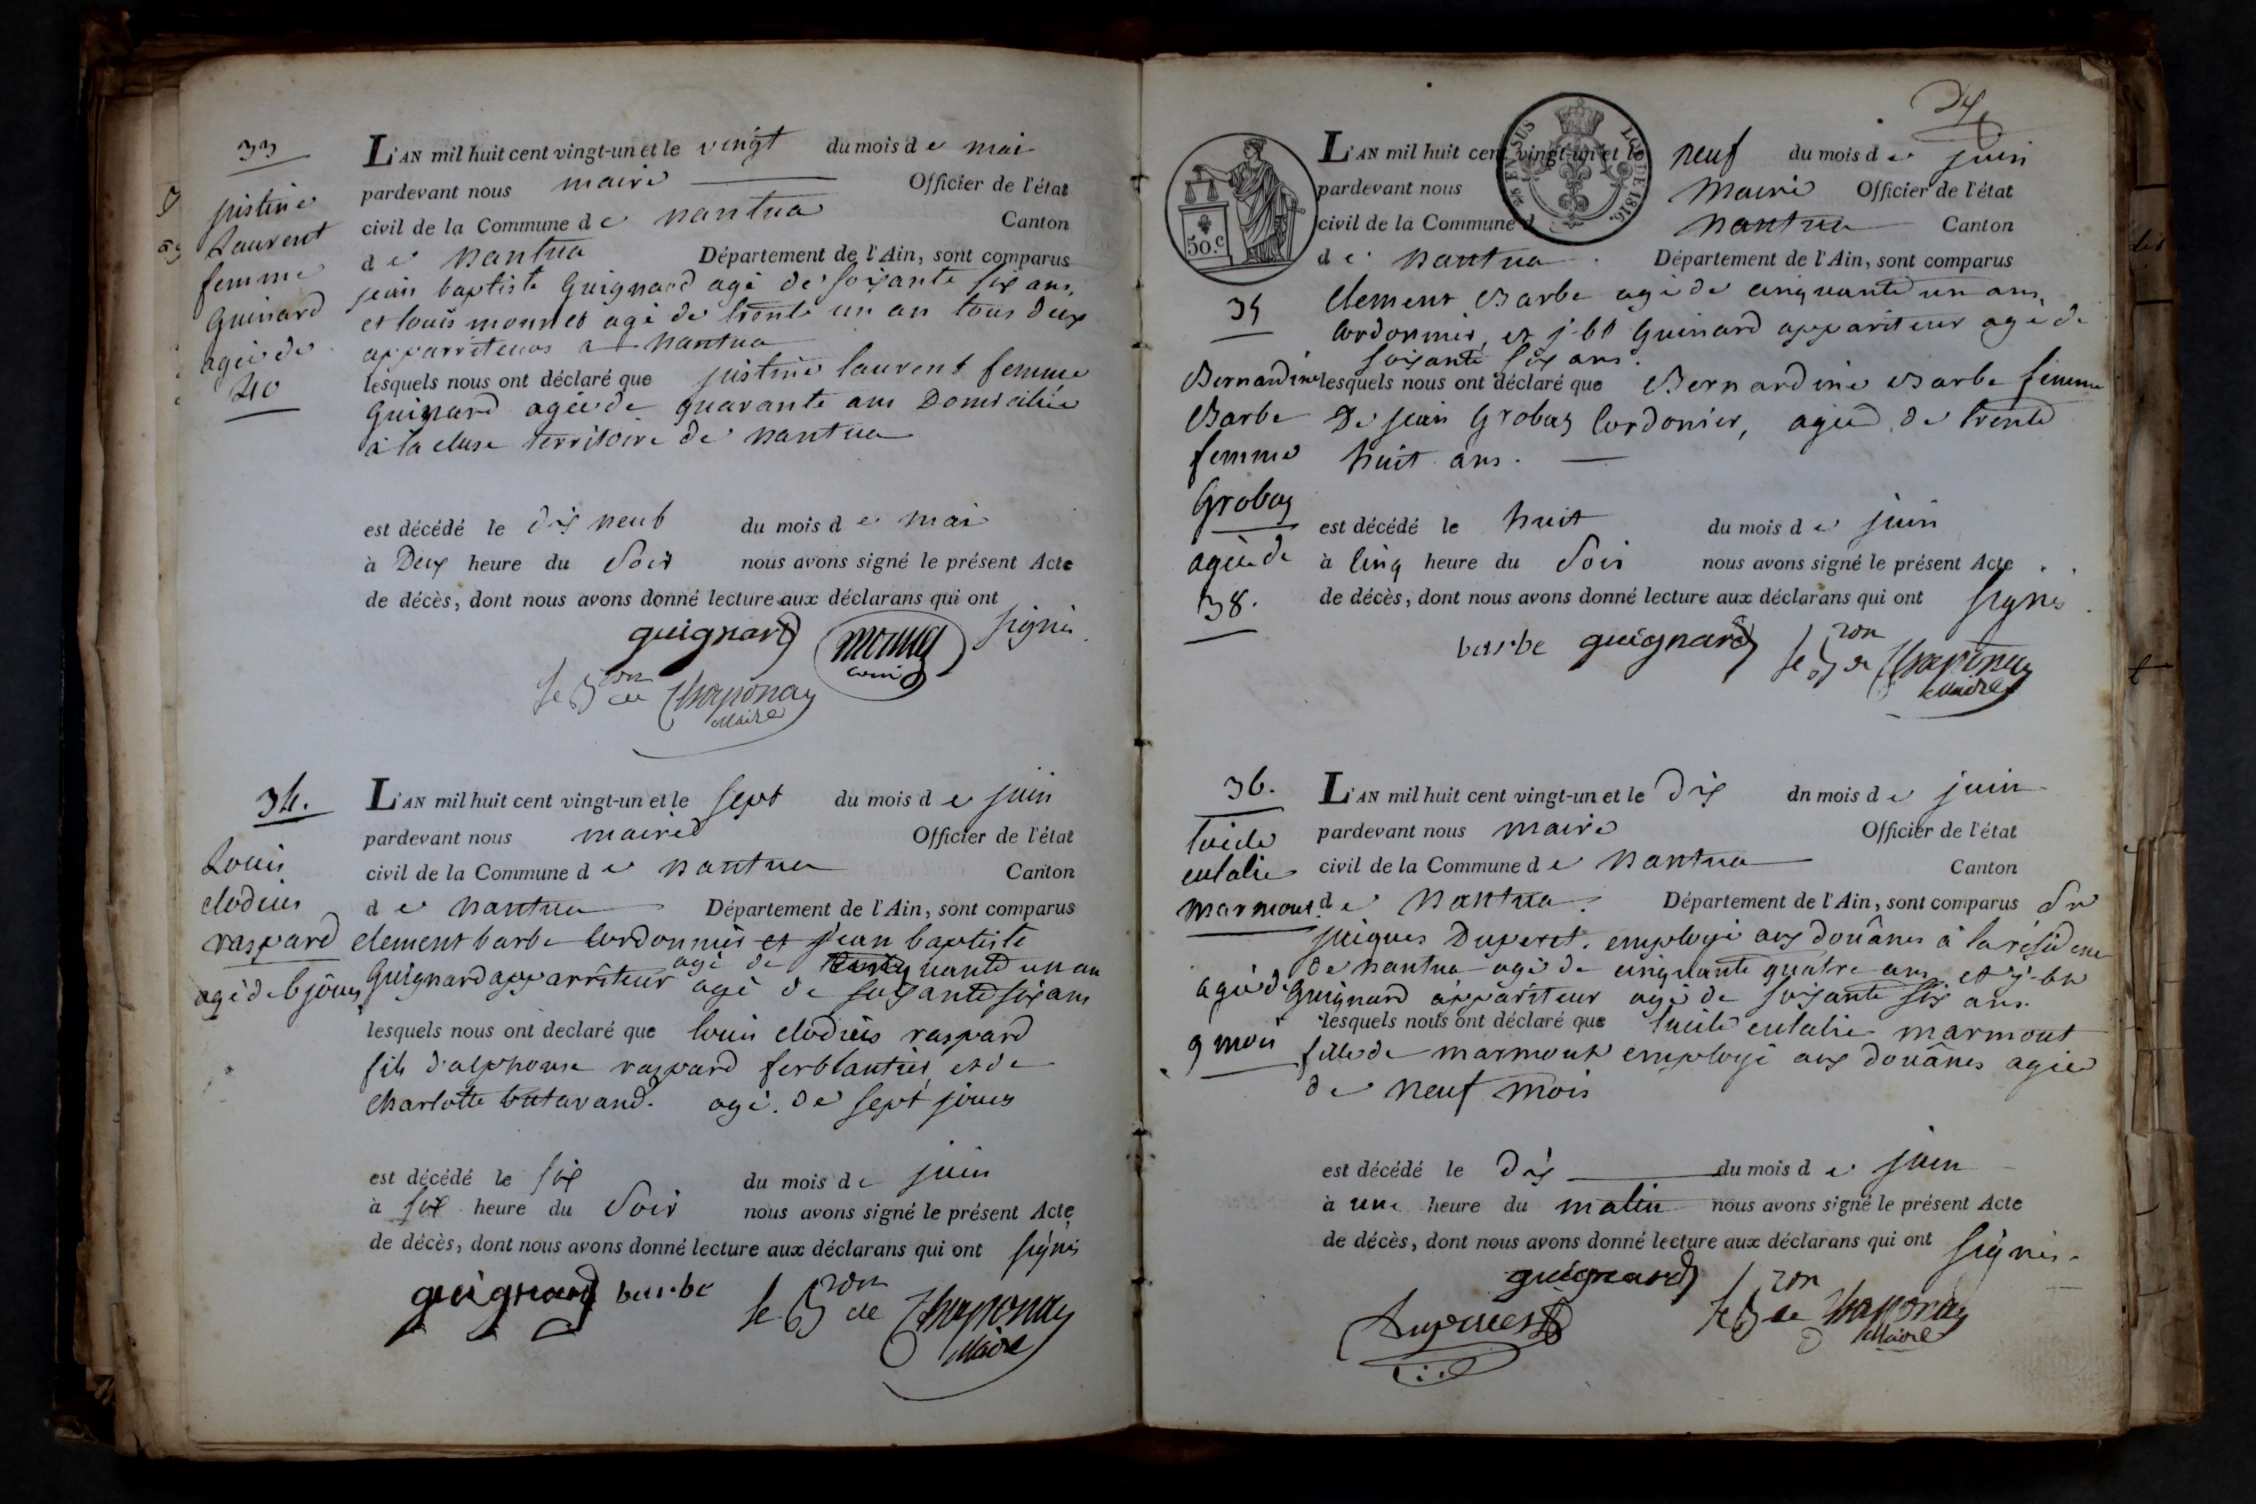 33
justine
Laurent
femme
Guinard
agée de
40
L'AN mil huit cent vingt-un et le vingt du mois de mai
pardevant nous maire Officier de l'état
civil de la Commune de nantua Canton
de nantua Département de l'Ain, sont comparus
jean baptiste Guignard agé de soixante six ans,
et louis monnet agé de trente un an tous deux
apparriteurs a nantua
lesquels nous ont déclaré que justine laurent femme
Guignard agée de quarante ans Domiciliée
à la cluse territoire de nantua
est décédé le dix neuf du mois de mai
à Deux heure du Soir nous avons signé le présent Acte
de décès, dont nous avons donné lecture aux déclarans qui ont signés
guignard
le Bon de Chaponay
Maire
34.
Louis
clodius
raspard
agé de 6 jours
L'AN mil huit cent vingt-un et le sept du mois de juin
pardevant nous maire Officier de l'état
civil de la Commune de nantua Canton
de nantua Département de l'Ain, sont comparus
clement barbe cordonnier et jean baptiste
agé de cinquante un an
Guignard apparriteur agé de soixante six ans
lesquels nous ont declaré que louis clodius raspard
fils d'alphonse raspard ferblantier, et de
charlotte butavand. agé de sept jours
est décédé le six du mois de juin
à six heure du Soir nous avons signé le présent Acte
de décès, dont nous avons donné lecture aux déclarans qui ont signés
guignard barbe le Bon de Chaponay
Maire
34
50.c
EN SUS
LOI DE 1816.
35
Bernardine
Barbe
femme
Grobas
agée de
38.
L'AN mil huit cent vingt-un et le neuf du mois de juin
pardevant nous Maire Officier de l'état
civil de la Commune d nantua Canton
de nantua Département de l'Ain, sont comparus
Clement Barbe agé de cinquante un ans,
Cordonnier, et j. bt Guinard appariteur agé de
soixante six ans.
lesquels nous ont déclaré que Bernardine Barbe femme
De jean Grobas Cordonier, agée de trente
huit ans.
est décédé le huit du mois de juin
à Cinq heure du Soir nous avons signé le présent Acte
de décès, dont nous avons donné lecture aux déclarans qui ont signés
barbe guignard le Bon de Chaponay
Maire
36.
lucile
eulalie
marmont
agée de
9 mois
L'AN mil huit cent vingt-un et le Dix dn mois de juin
pardevant nous maire Officier de l'état
civil de la Commune de nantua Canton
de nantua Département de l'Ain, sont comparus Sr
jacques Duperet employé aux douânes à la résidence
de nantua agé de cinquante quatre ans et j. bt
Guignard appariteur agé de soixante six ans.
lesquels nous ont déclaré que lucile eulalie marmont
fille de marmont employé aux douânes agée
de neuf mois
est décédé le Dix du mois de juin
à une heure du matin nous avons signé le présent Acte
de décès, dont nous avons donné lecture aux déclarans qui ont signés.
guignard
le Bon de Chaponay
Maire